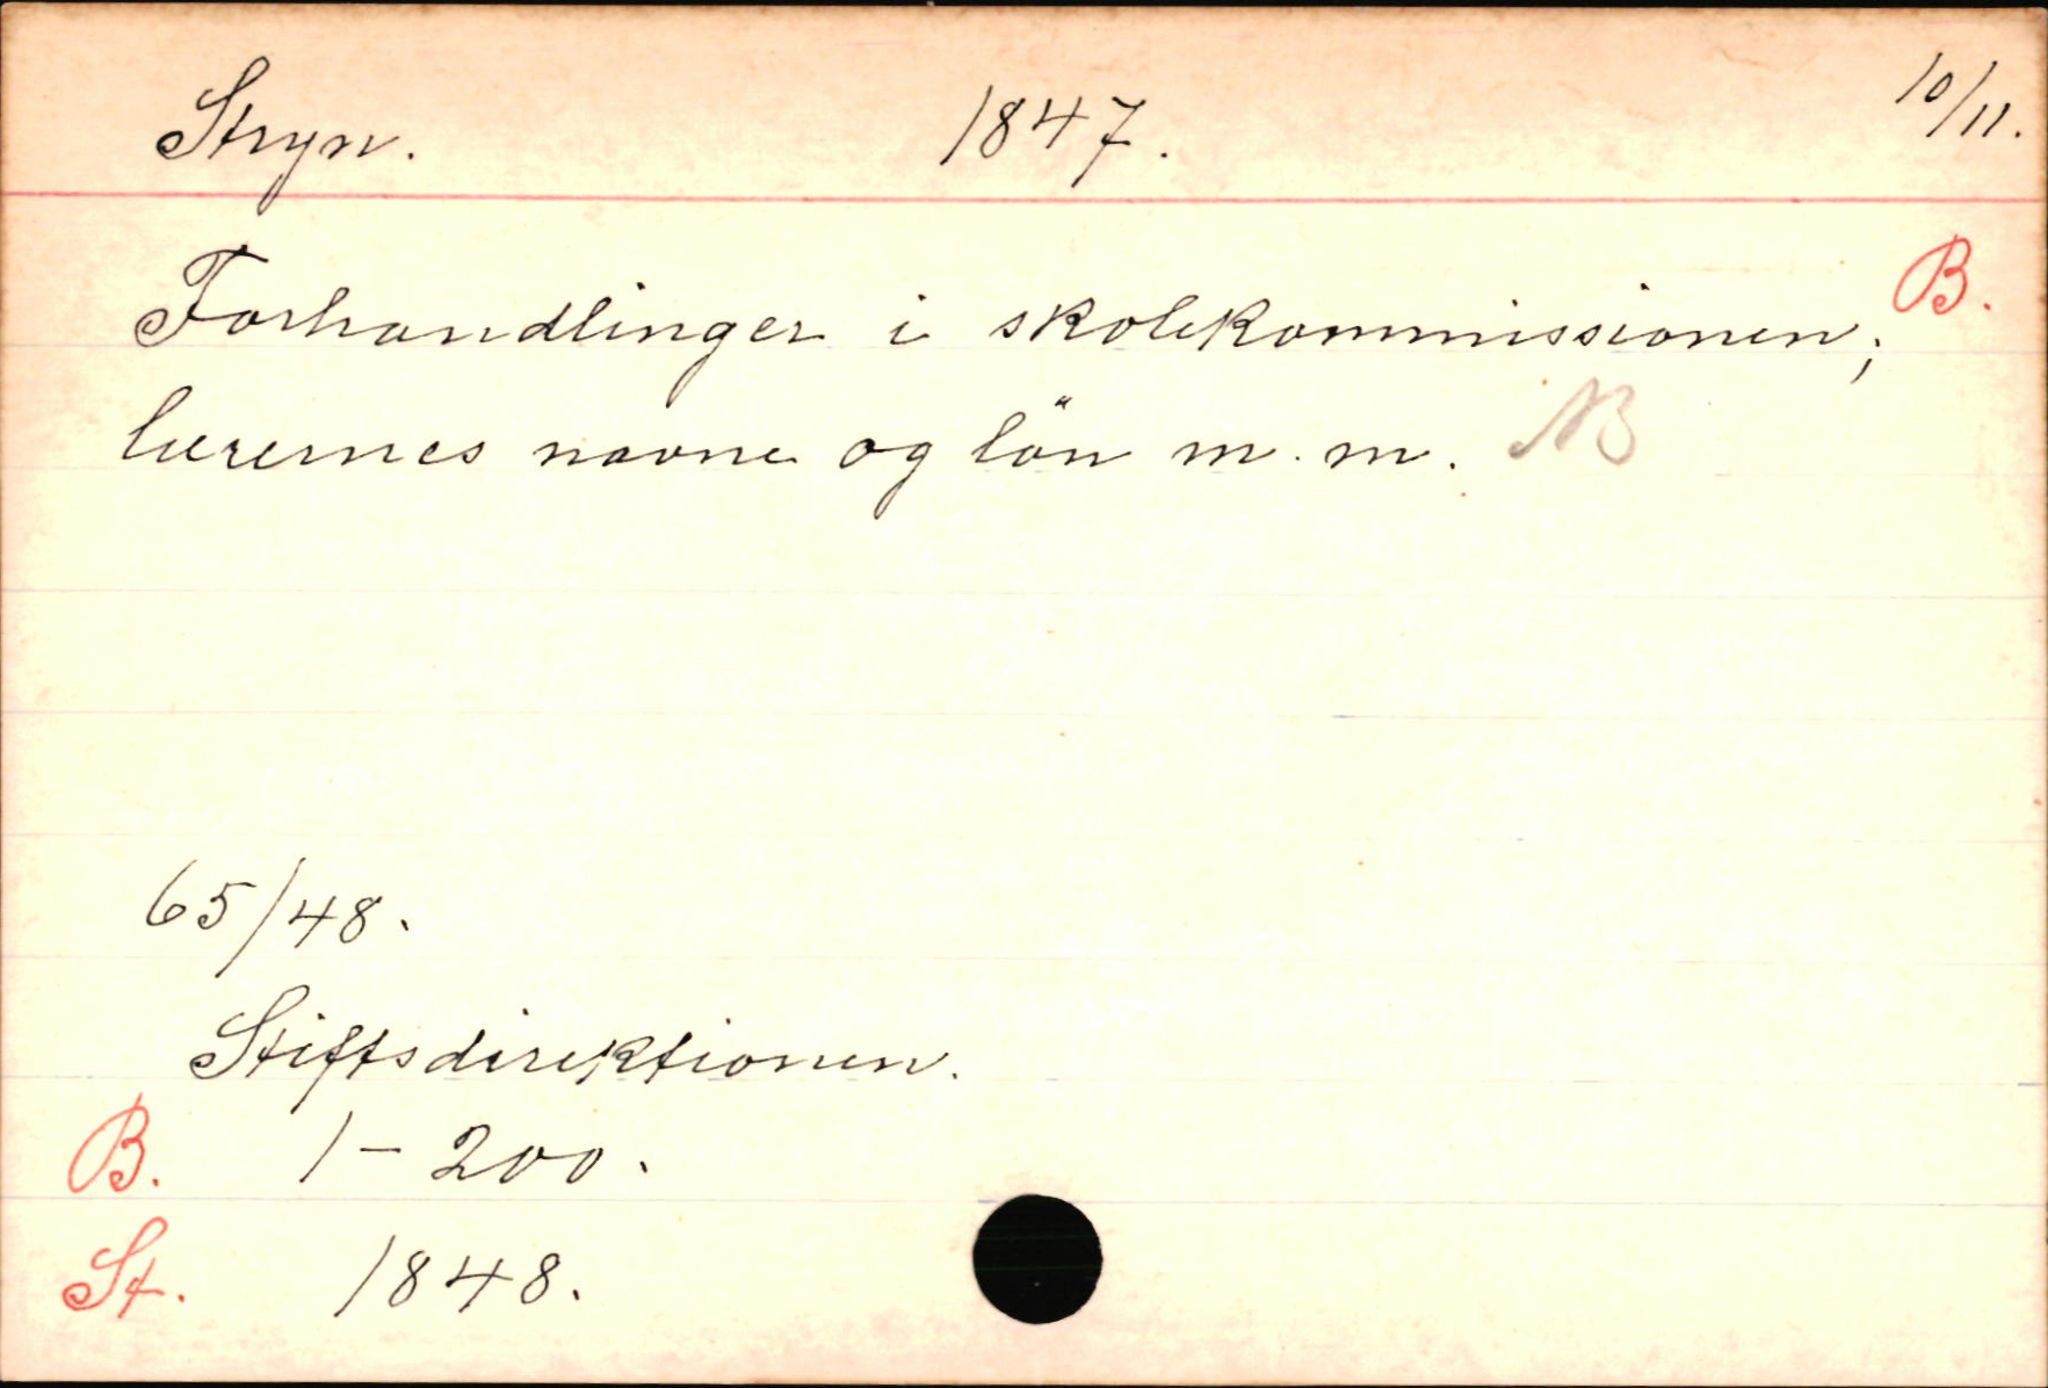 Stryn. 1847. 10/11.
B.
Forhandlinger i skolekommissionen;
lærernes navne og lön m. m. NB
65/48.
Stiftsdirektionen.
B. 1-200.
St. 1848.